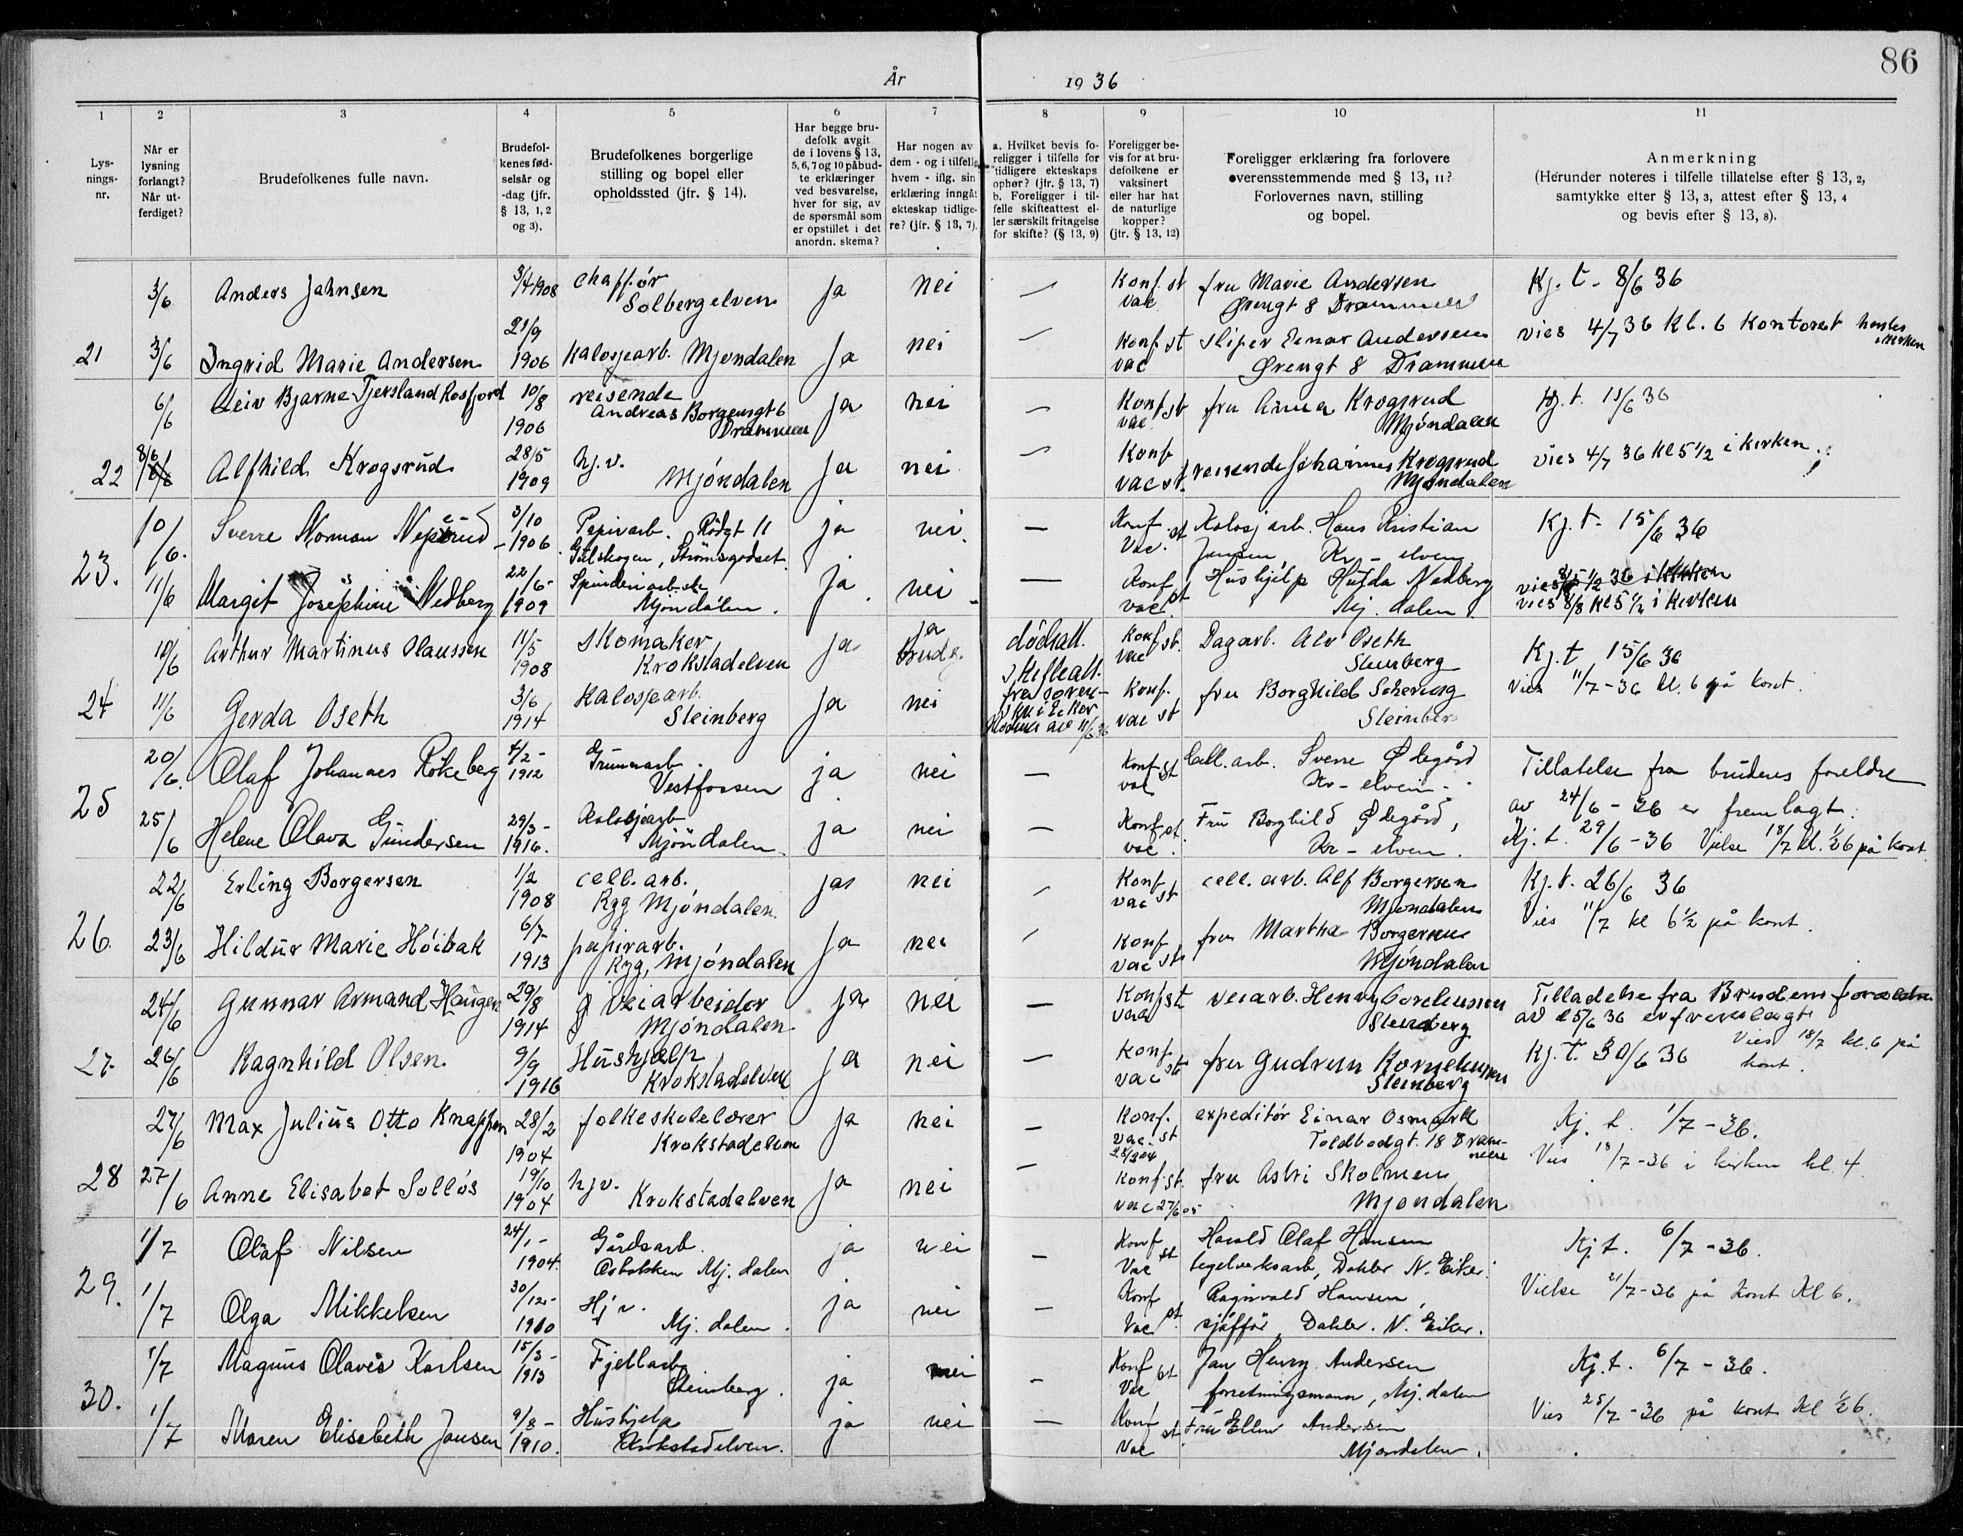 86
År 1936
1 2 3 4 5 6 7 8 9 10 11
Lysnings-nr.
Når er lysning forlangt? Når utferdiget?
Brudefolkenes fulle navn.
Brudefolkenes fødselsår og -dag (jfr. § 13, 1, 2 og 3).
Brudefolkenes borgerlige stilling og bopel eller opholdssted (jfr. § 14).
Har begge brudefolk avgit de i lovens § 13, 5, 6, 7 og 10 påbudte erklæringer ved besvarelse, hver for sig, av de spørsmål som er opstillet i det anordn. skema?
Har nogen av dem - og i tilfelle hvem - iflg. sin erklæring inngåt ekteskap tidligere? (jfr. § 13, 7).
a. Hvilket bevis foreligger i tilfelle for tidligere ekteskaps ophør? (jfr. § 13, 7) b. Foreligger i tilfelle skifteattest eller særskilt fritagelse for skifte? (§ 13, 9)
Foreligger bevis for at brudefolkene er vaksinert eller har hat de naturlige kopper? (jfr. § 13, 12)
Foreligger erklæring fra forlovere overensstemmende med § 13, 11? Forlovernes navn, stilling og bopel.
Anmerkning (Herunder noteres i tilfelle tillatelse efter § 13, 2, samtykke efter § 13, 3, attest efter § 13, 4 og bevis efter § 13, 8).
3/6 Anders Jahnsen 3/4 1908 chaffør Solbergelven ja nei — Konf. st vac fru Marie Andersen Ørengt 8 Drammen Kj. t. 8/6 36
21 3/6 Ingrid Marie Andersen 21/9 1906 kalosjearb. Mjøndalen Ja nei — Konf st vac sliper Einar Andersen Ørengt 8 Drammen vies 4/7 36 kl. 6 kontoret
6/6 Leiv Bjarne Tjersland Rosfjord 10/8 1906 reisende Andreas Borgengt 6 Drammen ja nei — Konf st vac fru Anna Krogsrud Mjøndalen Kj. t. 15/6 36
22 8/6 Alfhild Krogsrud 28/5 1909 hj.v. Mjøndalen ja nei — Konf vac st. reisende Johannes Krogsrud Mjøndalen vies 4/7 36 kl 5 1/2 i kirken
10/6. Sverre Norman 3/10 - 1906 Papirarb. Rødgt 11 Gulskogen, Strømsgodset. ja nei. — Konf st Vac. Kalosjarb. Hans Kristian Jansen Kr - elven Kj. t. 15/6 36
23. 11/6 Margit Josephine Nedberg 22/6 - 1909 Spinderiarb.ske Mjøndalen. ja. nei — Konf vac st Hushjelp Hulda Nedberg Mj. dalen. vies 8/8 kl 5 1/2 i kirken
10/6 Arthur Martinus Olaussen 11/5 1908 Skomaker Krokstadelven ja ja brudg. dødsatt. skifteatt. fra soren- skr i Eiker av 11/6 36 Konf st. vac Dagarb. Alv Oseth Steinberg Kj. t 15/6 36
24 11/6 Gerda Oseth 3/6 1914 kalosjearb. Steinberg ja nei Konf. vac st fru Borghild Steinberg Vies 11/7 - 36 kl. 6 på kont.
20/6. Olaf Johannes Røkeberg 4/2 - 1912 Grunnarb. Vestfossen ja nei — Konf st vac Cell. arb. Sverre Ødegård Kr - elven. Tillatelse fra brudens foreldre av 24/6 - 36 er fremlagt.
25 25/6 Helene Olava Gundersen 29/3 - 1916. Kalosjearb Mjøndalen. ja nei — Konf st. vac. Fru Borghild Ødegård, Kr - elven. Kj. t. 29/6 - 36 Vielse 18/7 kl. 1/2 6 på kont.
22/6 Erling Borgersen 1/2 1908 cell. arb. Ryg Mjøndalen. ja nei — Konf vac st cell. arb. Alf Borgersen Mjøndalen Kj. t. 26/6 36
26. 23/6 Hildur Marie Høibak 6/7 - 1913 papirarb. Ryg, Mjøndalen ja nei — Konf vac st. fru Martha Borgersen Mjøndalen Vies 11/7 kl 6 1/2 på kont.
24/6 Gunnar Armand Haugen 29/8 1914 veiarbeider Mjøndalen ja nei — Konf st vac veiarb. Henry Corneliussen Steinberg Tilladelse fra Brudens forældre av 25/6 36 er fremlagt
27. 26/6 Ragnhild Olsen. 9/9 1916 Hushjelp Krokstadelven ja nei — Konf. vac st fru Gudrun Korneliussen Steinberg Kj. T. 30/6 36 Vies 18/7 kl. 6 på kont.
27/6 Max Julius Otto Knapp 28/2 1904 folkeskolelærer Krokstadelven ja nei — Konf. vac. st 28/2 04 expeditør Einar Osmark Toldbodgt. 18 Drammen Kj. t. 1/7 - 36.
28 27/6 Anne Elisabet Solløs 19/10 1904 hjv. Krokstadelven ja nei — Konf. st. vac 27/6 05 fru Astri Skolmen Mjøndalen Vies 18/7 - 36 i kirken kl. 4
1/7 Olaf Nilsen 24/1 - 1904. Gårdsarb. Mj. dalen ja nei — Konf st Vac Harald Olaf Hansen teglverksarb, Dahler N. Eiker. Kj. t. 6/7 - 36.
29. 1/7 Olga Mikkelsen 30/12 - 1910 Hj v. Mj. dalen. ja nei — Konf st. Vac Ragnvald Hansen, sjåffør, Dahler. N. Eiker. Vielse 21/7 - 36 på kont kl 6.
1/7 Magnus Olavis Karlsen 15/3 - 1913 Fjellarb. Steinberg. ja nei — Konf st Vac Jan Henry Andersen forretningsmann, Mj. dalen Kj. t. 6/7 - 36.
30. 1/7 Maren Elisabeth Jansen 9/8 - 1910. Hushjelp Krokstadelven. ja nei — Konf st Vac Fru Ellen Andersen Mjøndalen. Vies 25/7 - 36 på kont kl 1/2 6.